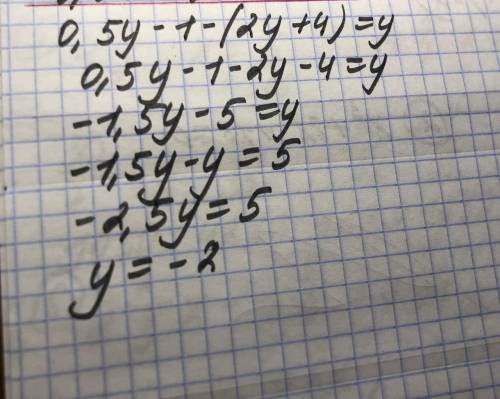 0,5y - 1 - (2y + 4) = y
0,5y - 1 - 2y - 4 = y
-1,5y - 5 = y
-1,5y - y = 5
-2,5y = 5
y = -2